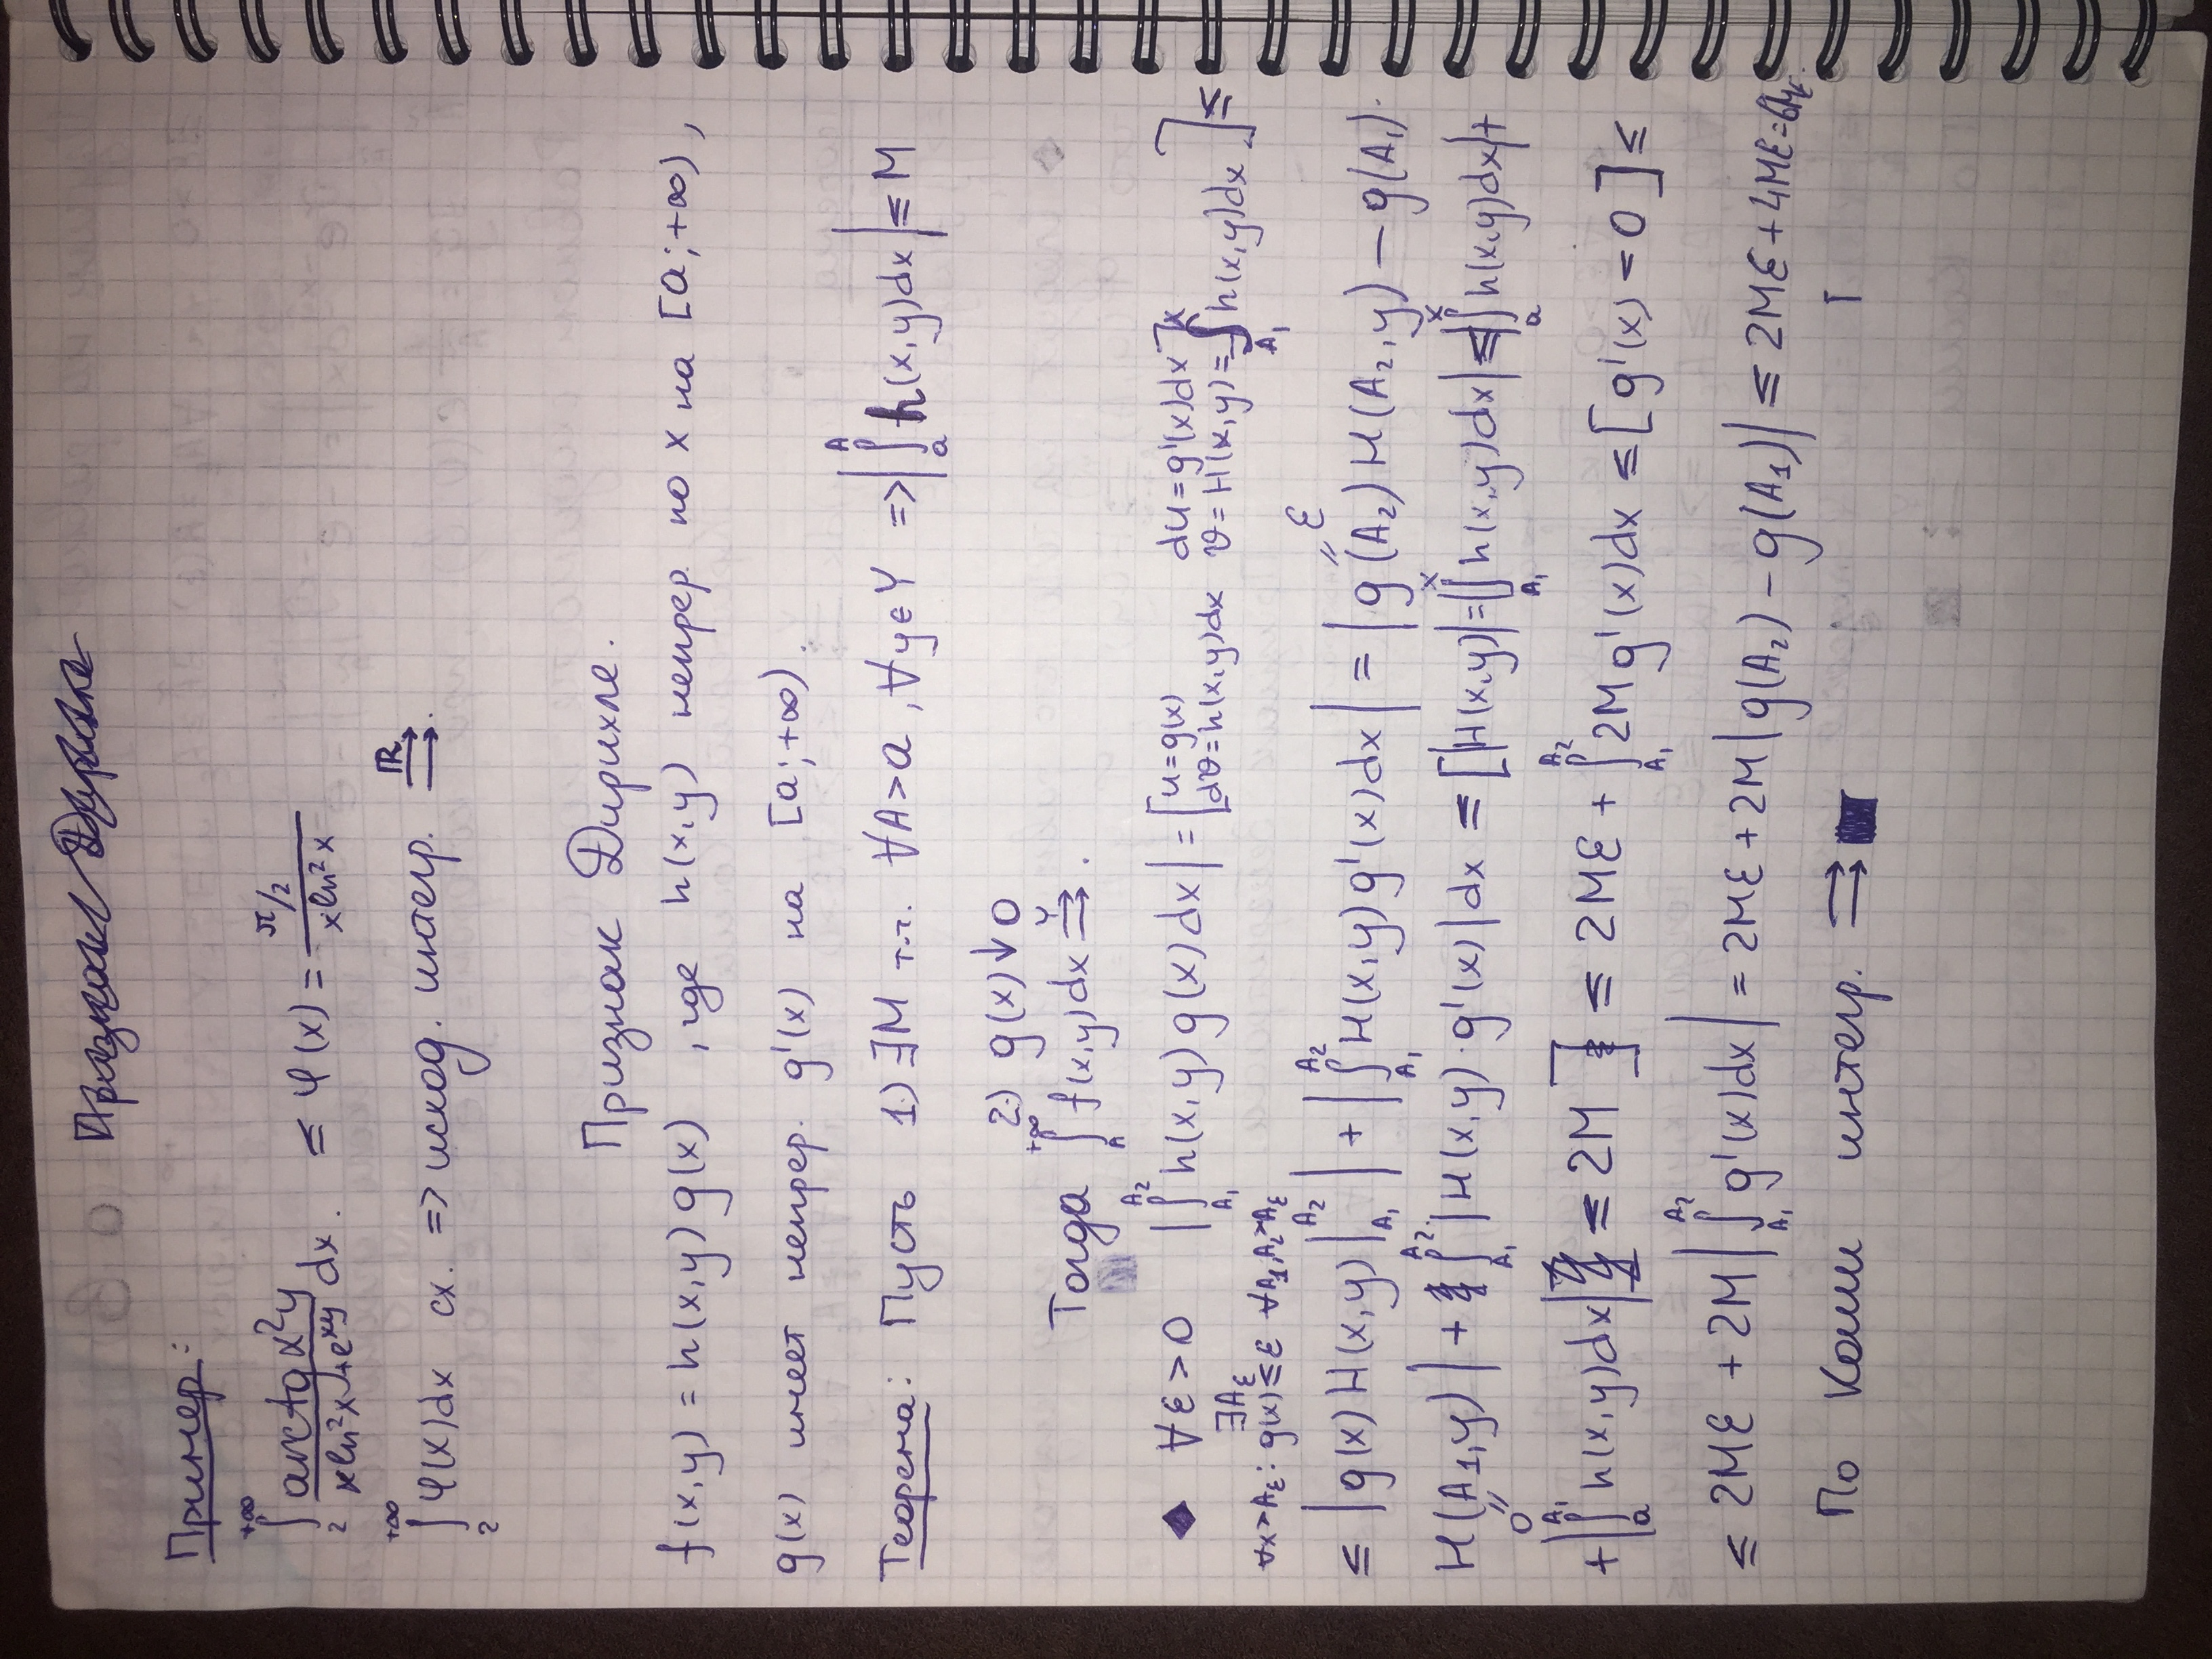 Пример:
+∞ ∫ 2 arctg x²y / (x ln²x + e^xy) dx. ≤ φ(x) = π/2 / (x ln²x)
+∞ ∫ 2 φ(x)dx сх. => исход. интегр. ⇉ ℝ.
Признак Дирихле.
f(x,y) = h(x,y) g(x) , где h(x,y) непрер. по x на [a;+∞),
g(x) имеет непрер. g'(x) на [a;+∞).
Теорема: Пусть 1.) ∃M т.ч. ∀A>a, ∀y∈Y => |∫ₐᴬ h(x,y)dx| ≤ M
2.) g(x)↓0
Тогда +∞ ∫ A f(x,y)dx ⇉ Y .
◆ ∀ε>0 |∫ A₁ A₂ h(x,y) g(x) dx| = [u=g(x) du=g'(x)dx
∃Aε dv=h(x,y)dx v=H(x,y)=∫ A₁ x h(x,y)dx ] ≤
∀x>Aε: g(x)≤ε ∀A₁,A₂>Aε
≤ |g(x) H(x,y)| A₁ A₂ | + |∫ A₁ A₂ H(x,y) g'(x) dx| = |g(A₂) H(A₂,y) − g(A₁)·
= ε
H(A₁,y)| + ∫ A₁ A₂ |H(x,y)·g'(x)|dx ≤ [|H(x,y)|=|∫ A₁ x h(x,y)dx| ≤ |∫ a x h(x,y)dx|+
= 0
+|∫ a A₁ h(x,y)dx| ≤ 2M ] ≤ 2Mε + ∫ A₁ A₂ 2M g'(x)dx ≤ [g'(x) < 0] ≤
≤ 2Mε + 2M|∫ A₁ A₂ g'(x)dx| = 2Mε + 2M|g(A₂) − g(A₁)| ≤ 2Mε + 4Mε = 6Mε.
По Коши интегр. ⇉ ■